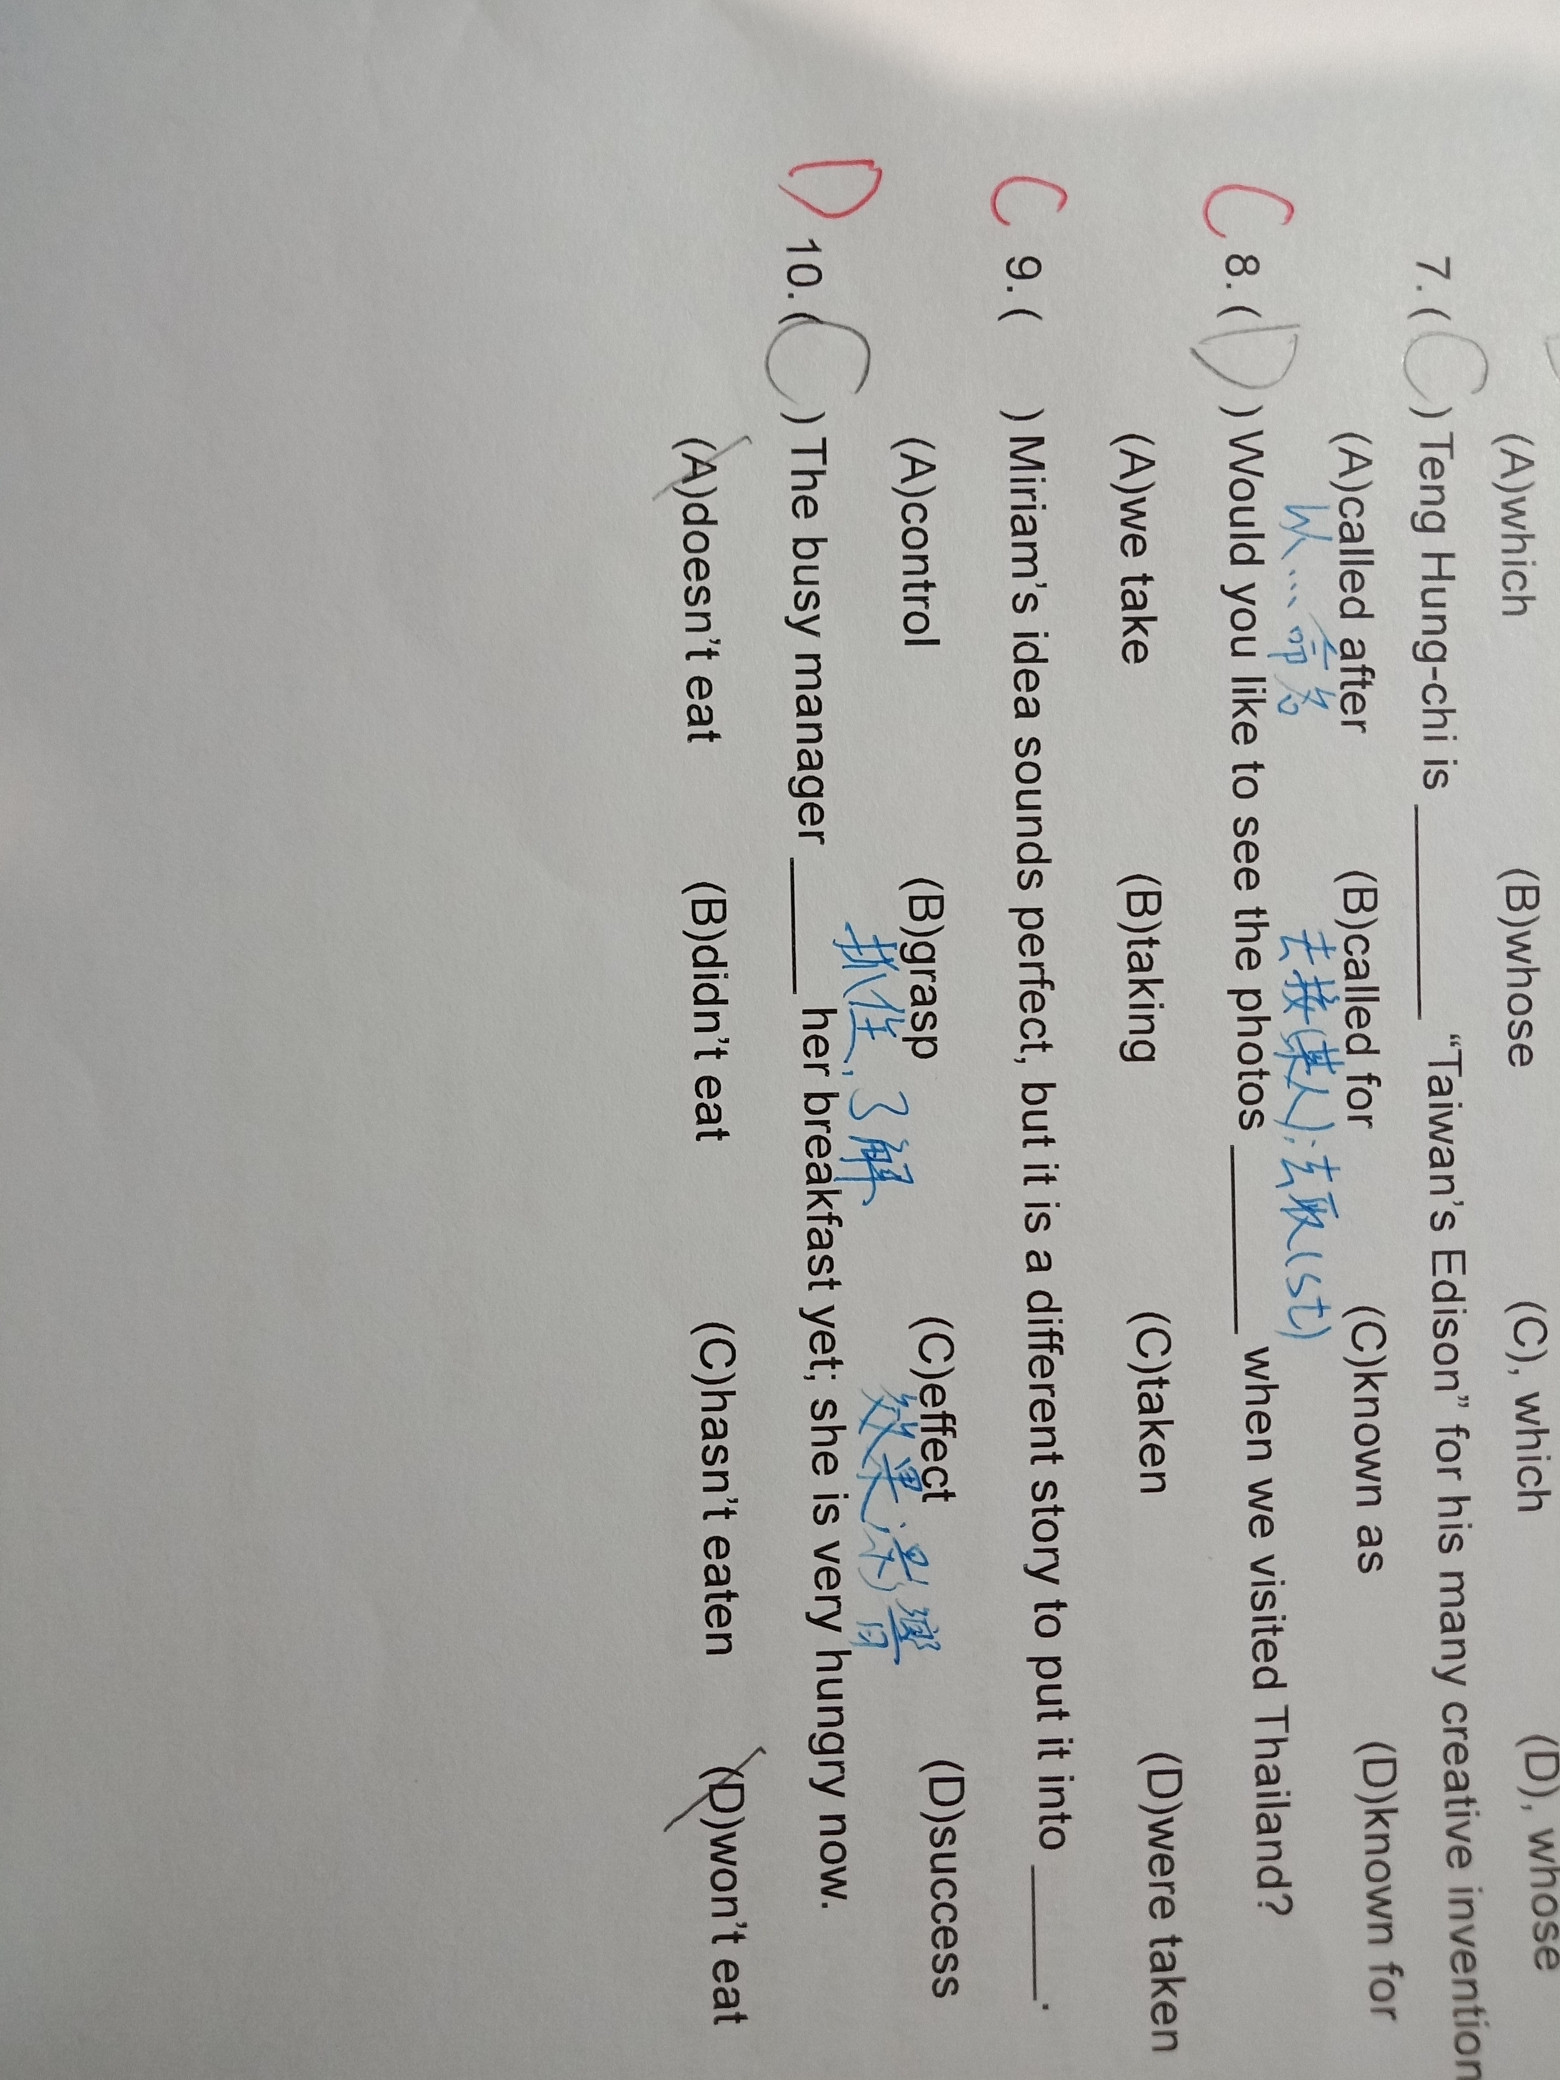 (A)which (B)whose (C), which (D), whose
7. ( C ) Teng Hung-chi is ______ “Taiwan’s Edison” for his many creative invention
(A)called after (B)called for (C)known as (D)known for
以…命名 去接(某人);去取(st)
C 8. ( D ) Would you like to see the photos ______ when we visited Thailand?
(A)we take (B)taking (C)taken (D)were taken
C 9. ( ) Miriam’s idea sounds perfect, but it is a different story to put it into ______.
(A)control (B)grasp (C)effect (D)success
抓住,了解 效果;影響
D 10. ( C ) The busy manager ______ her breakfast yet; she is very hungry now.
(A)doesn’t eat (B)didn’t eat (C)hasn’t eaten (D)won’t eat